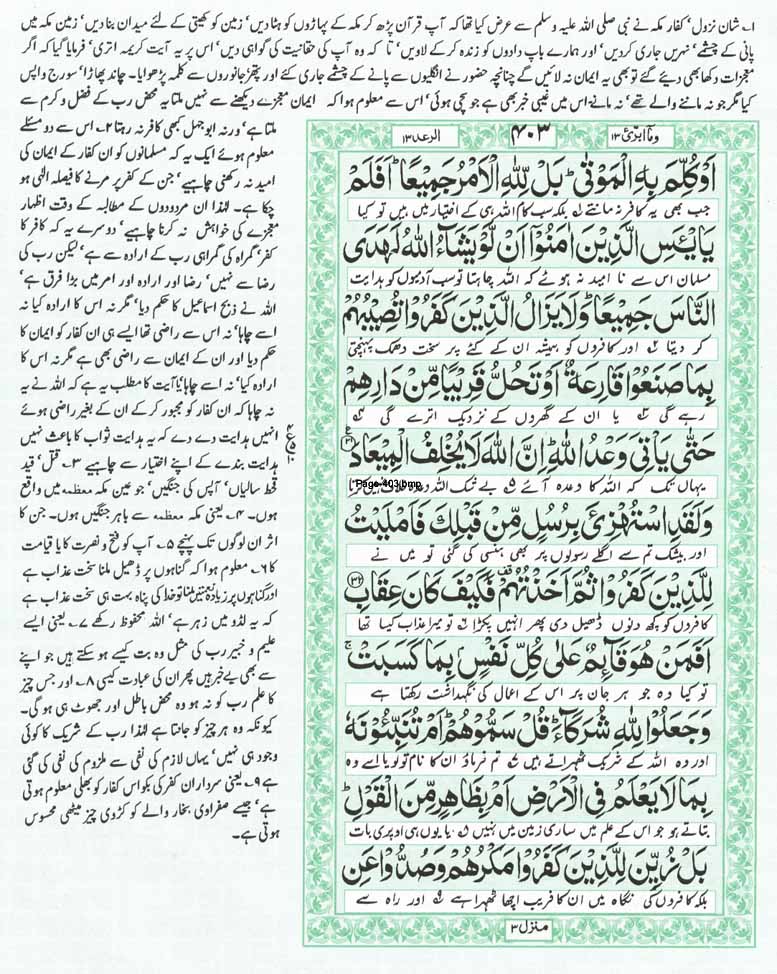 ۱۔ شان نزول' کفار مکہ نے نبی صلی اللہ علیہ وسلم سے عرض کیا تھا کہ آپ قرآن پڑھ کر مکہ کے پہاڑوں کو ہٹا دیں' زمین کو کھیتی کے لئے میدان بنا دیں' زمین مکہ میں
پانی کے چشمے' نہریں جاری کر دیں' اور ہمارے باپ دادوں کو زندہ کر کے لاویں' تا کہ وہ آپ کی حقانیت کی گواہی دیں' اس پر یہ آیت کریمہ اتری' فرمایا گیا کہ اگر
معجزات دکھا بھی دیئے گئے تو بھی یہ ایمان نہ لائیں گے چنانچہ حضور نے انگلیوں سے پانے کے چشمے جاری کئے اور پتھر' جانوروں سے کلمہ پڑھوایا۔ چاند پھاڑا' سورج واپس
کیا مگر جو نہ ماننے والے تھے' نہ مانے اس میں غیبی خبر بھی ہے جو سچی ہوئی' اس سے معلوم ہوا کہ ایمان معجزے دیکھنے سے نہیں ملتا یہ محض رب کے فضل و کرم سے
ملتا ہے' ورنہ ابوجہل کبھی کافر نہ رہتا ۲۔ اس سے دو مسئلے
معلوم ہوئے ایک یہ کہ مسلمانوں کو ان کفار کے ایمان کی
امید نہ رکھنی چاہیے' جن کے کفر پر مرنے کا فیصلہ الٰہی ہو
چکا ہے۔ لہٰذا ان مردودوں کے مطالبہ کے وقت اظہار
معجزے کی خواہش نہ کرنا چاہیے' دوسرے یہ کہ کافر کا
کفر' گمراہ کی گمراہی رب کے ارادہ سے ہے' لیکن رب کی
رضا سے نہیں' رضا اور ارادہ اور امر میں بڑا فرق ہے'
اللہ نے ذبح اسماعیل کا حکم دیا' مگر نہ اس کا ارادہ کیا نہ
اسے چاہا' نہ اس سے راضی تھا ایسے ہی ان کفار کو ایمان کا
حکم دیا اور ان کے ایمان سے راضی بھی ہے مگر نہ اس کا
ارادہ کیا' نہ اسے چاہا یا آیت کا مطلب یہ ہے کہ اللہ نے یہ
نہ چاہا کہ ان کفار کو مجبور کر کے ان کے بغیر راضی ہوئے
انہیں ہدایت دے دے کہ یہ ہدایت ثواب کا باعث نہیں
ہدایت بندے کے اپنے اختیار سے چاہیے ۳۔ قتل' قید
قحط سالیاں' آپس کی جنگیں' جو عین مکہ معظمہ میں واقع
ہوں۔ ۴۔ یعنی مکہ معظمہ سے باہر جنگیں ہوں۔ جن کا
اثر ان لوگوں تک پہنچے ۵۔ آپ کو فتح و نصرت کا یا قیامت
کا ۶۔ معلوم ہوا کہ گناہوں پر ڈھیل ملنا سخت عذاب ہے
اور گناہوں پر زیادہ نعمتیں ملنا تو خدا کی پناہ بہت ہی سخت عذاب ہے
کہ یہ لڈو میں زہر ہے' اللہ محفوظ رکھے ۷۔ یعنی ایسے
علیم و خبیر رب کی مثل وہ بت کیسے ہو سکتے ہیں جو اپنے
سے بھی بے خبر ہیں پھر ان کی عبادت کیسی ۸۔ اور جس چیز
کا علم رب کو نہ ہو وہ محض باطل اور جھوٹ ہی ہو گی۔
کیونکہ وہ ہر چیز کو جانتا ہے لہٰذا رب کے شریک کا کوئی
وجود ہی نہیں' یہاں لازم کی نفی سے ملزوم کی نفی کی گئی
ہے ۹۔ یعنی سرداران کفر کی بکواس کفار کو بھلی معلوم ہوتی
ہے' جیسے صفراوی بخار والے کو کڑوی چیز میٹھی محسوس
ہوتی ہے۔
وما ابرئ ۱۳
۴۰۳
الرعد ۱۳
اَوْ كُلِّمَ بِهِ الْمَوْتٰى ؕ بَلْ لِّلّٰهِ الْاَمْرُ جَمِيْعًا ؕ اَفَلَمْ
جب بھی یہ کافر نہ مانتے ۱ بلکہ سب کام اللہ ہی کے اختیار میں ہیں تو کیا
يَايْـَٔسِ الَّذِيْنَ اٰمَنُوْۤا اَنْ لَّوْ يَشَآءُ اللّٰهُ لَهَدَى
مسلمان اس سے نا امید نہ ہوئے کہ اللہ چاہتا تو سب آدمیوں کو ہدایت
النَّاسَ جَمِيْعًا ؕ وَلَا يَزَالُ الَّذِيْنَ كَفَرُوْا تُصِيْبُهُمْ
کر دیتا ۲ اور کافروں کو ہمیشہ ان کے کئے پر سخت دھمک پہنچتی
بِمَا صَنَعُوْا قَارِعَةٌ اَوْ تَحُلُّ قَرِيْبًا مِّنْ دَارِهِمْ
رہے گی ۳ یا ان کے گھروں کے نزدیک اترے گی ۴
حَتّٰى يَاْتِيَ وَعْدُ اللّٰهِ ؕ اِنَّ اللّٰهَ لَا يُخْلِفُ الْمِيْعَادَ ﴿۳۱﴾
یہاں تک کہ اللہ کا وعدہ آئے ۵ بے شک اللہ وعدہ خلاف نہیں کرتا
Page-403.bmp
وَلَقَدِ اسْتُهْزِئَ بِرُسُلٍ مِّنْ قَبْلِكَ فَاَمْلَيْتُ
اور بیشک تم سے اگلے رسولوں پر بھی ہنسی کی گئی تو میں نے
لِلَّذِيْنَ كَفَرُوْا ثُمَّ اَخَذْتُهُمْ ۫ فَكَيْفَ كَانَ عِقَابِ ﴿۳۲﴾
کافروں کو کچھ دنوں ڈھیل دی پھر انہیں پکڑا ۶ تو میرا عذاب کیسا تھا
اَفَمَنْ هُوَ قَآئِمٌ عَلٰى كُلِّ نَفْسٍۭ بِمَا كَسَبَتْ ۚ
تو کیا وہ جو ہر جان پر اس کے اعمال کی نگہداشت رکھتا ہے
وَجَعَلُوْا لِلّٰهِ شُرَكَآءَ ؕ قُلْ سَمُّوْهُمْ ؕ اَمْ تُنَبِّـُٔوْنَهٗ
اور وہ اللہ کے شریک ٹھہراتے ہیں ۷ تم فرماؤ ان کا نام تو لو یا اسے وہ
بِمَا لَا يَعْلَمُ فِي الْاَرْضِ اَمْ بِظَاهِرٍ مِّنَ الْقَوْلِ ؕ
بتاتے ہو جو اس کے علم میں ساری زمین میں نہیں ۸ یا یوں ہی اوپری بات
بَلْ زُيِّنَ لِلَّذِيْنَ كَفَرُوْا مَكْرُهُمْ وَصُدُّوْا عَنِ
بلکہ کافروں کی نگاہ میں ان کا فریب اچھا ٹھہرا ہے ۹ اور راہ سے
منزل ۳